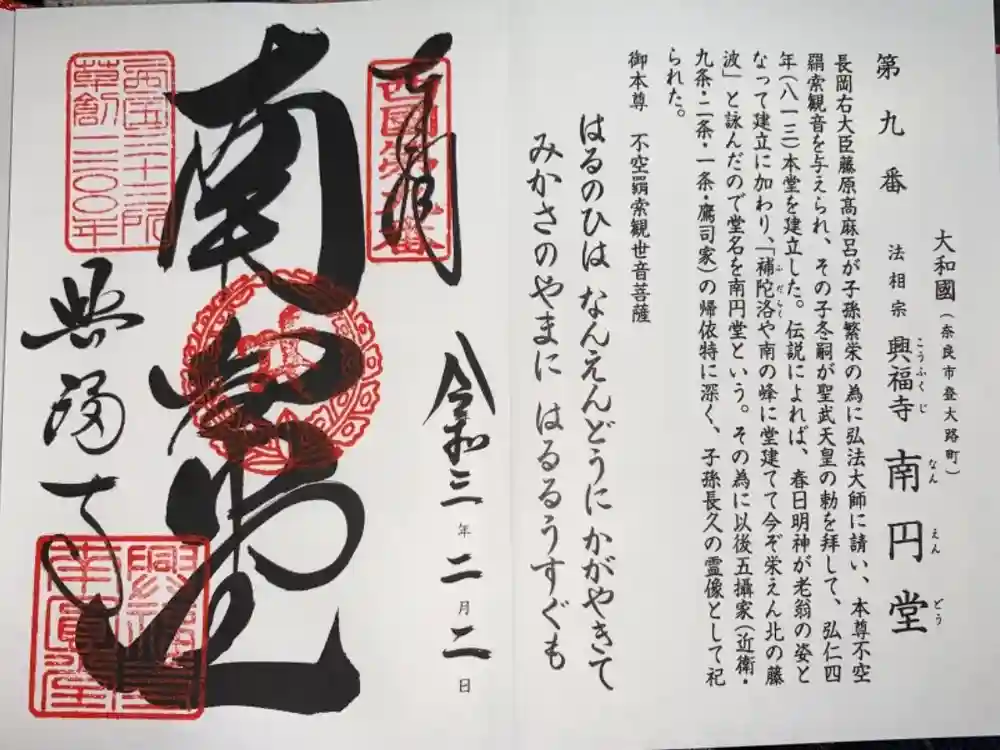 大和國(奈良市登大路町)
第九番 法相宗 興福寺 南円堂
こうふくじ なんえんどう
長岡右大臣藤原高麻呂が子孫繁栄の為に弘法大師に請い、本尊不空
羂索観音を与えられ、その子冬嗣が聖武天皇の勅を拝して、弘仁四
年(八一三)本堂を建立した。伝説によれば、春日明神が老翁の姿と
なって建立に加わり、「補陀洛や南の峰に堂建てて今ぞ栄えん北の藤
ふだらく
波」と詠んだので堂名を南円堂という。その為に以後五攝家(近衛・
九条・二条・一条・鷹司家)の帰依特に深く、子孫長久の霊像として祀
られた。
御本尊 不空羂索観世音菩薩
はるのひは なんえんどうに かがやきて
みかさのやまに はるるうすぐも
奉拝
西國第九番
令和三年二月二日
南円堂
興福寺
西国三十三所
草創一三〇〇年
興福寺
南圓堂